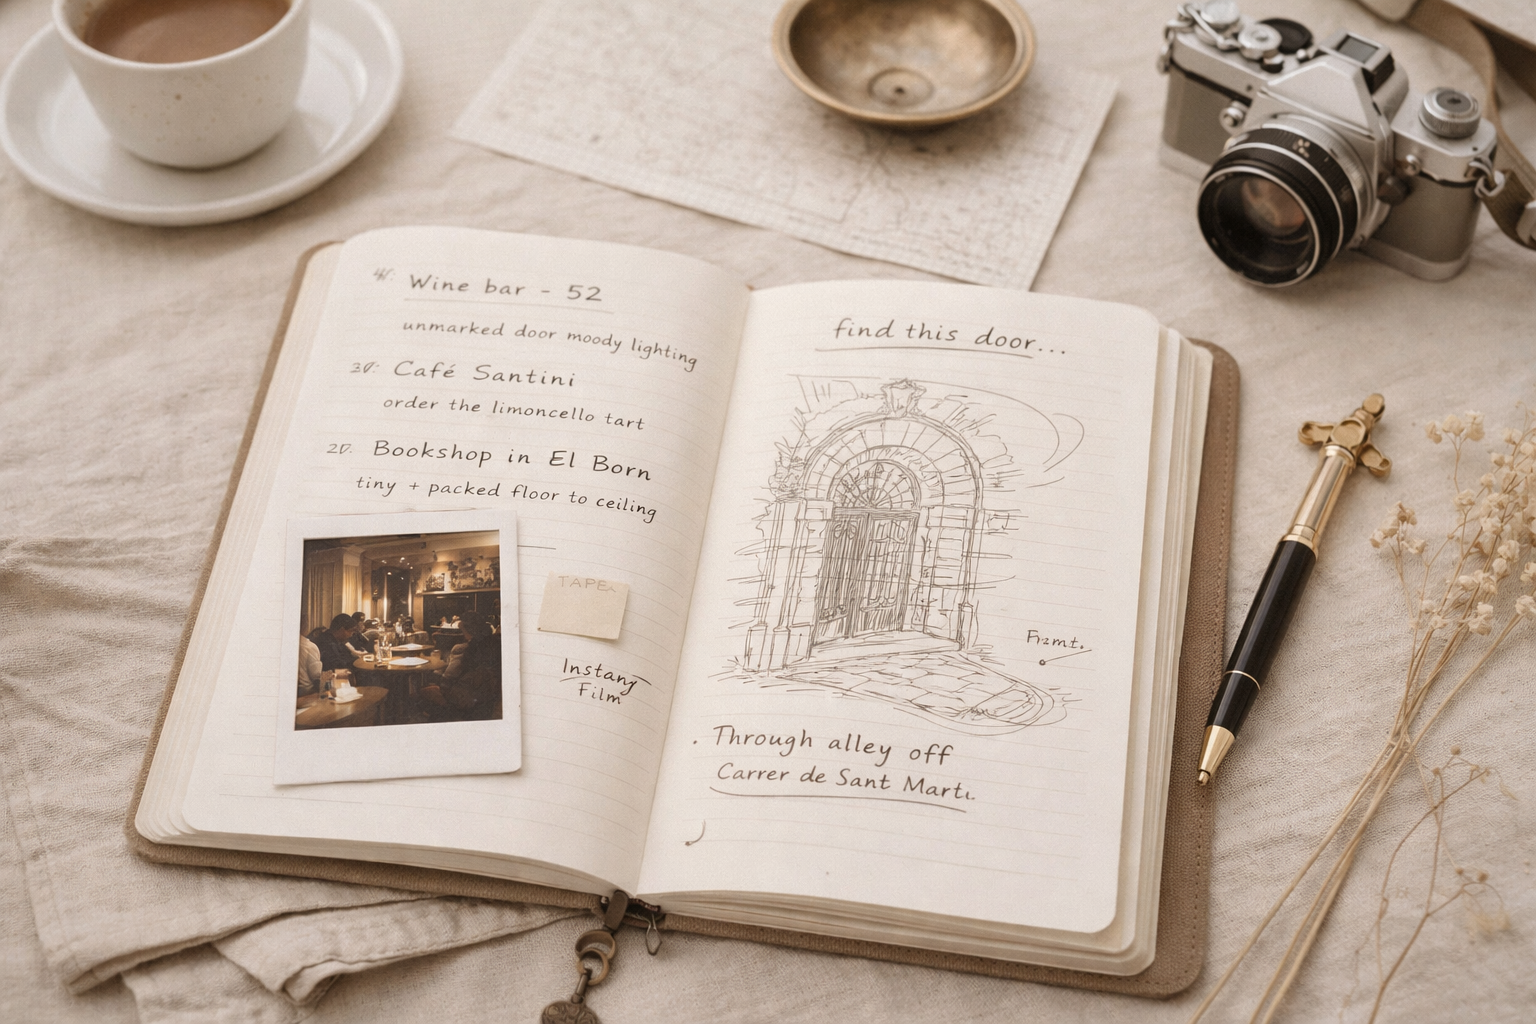 Wine bar - 52
unmarked door moody lighting
Café Santini
order the limoncello tart
Bookshop in El Born
tiny + packed floor to ceiling
TAPE
Instany
Film
find this door...
Through alley off
Carrer de Sant Marti.